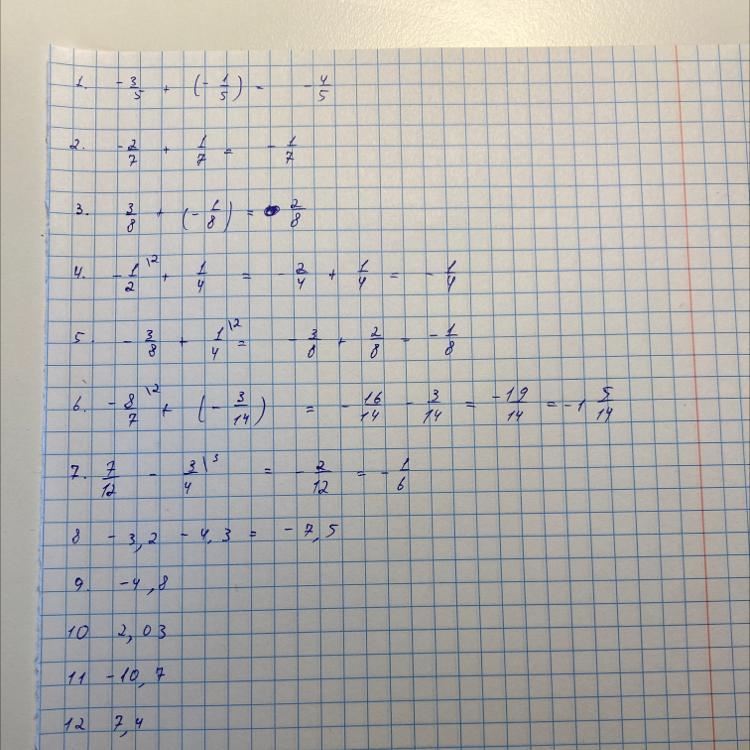 1. -3/5 + (-1/5) = -4/5
2. -2/7 + 1/7 = -1/7
3. 3/8 + (-1/8) = 2/8
4. -1/2 \2 + 1/4 = -2/4 + 1/4 = -1/4
5. -3/8 + 1/4 \2 = -3/8 + 2/8 = -1/8
6. -8/7 \2 + (-3/14) = -16/14 - 3/14 = -19/14 = -1 5/14
7. 7/12 - 3/4 \3 = -2/12 = -1/6
8 -3,2 - 4,3 = -7,5
9. -4,8
10 2,03
11 -10,7
12 7,4